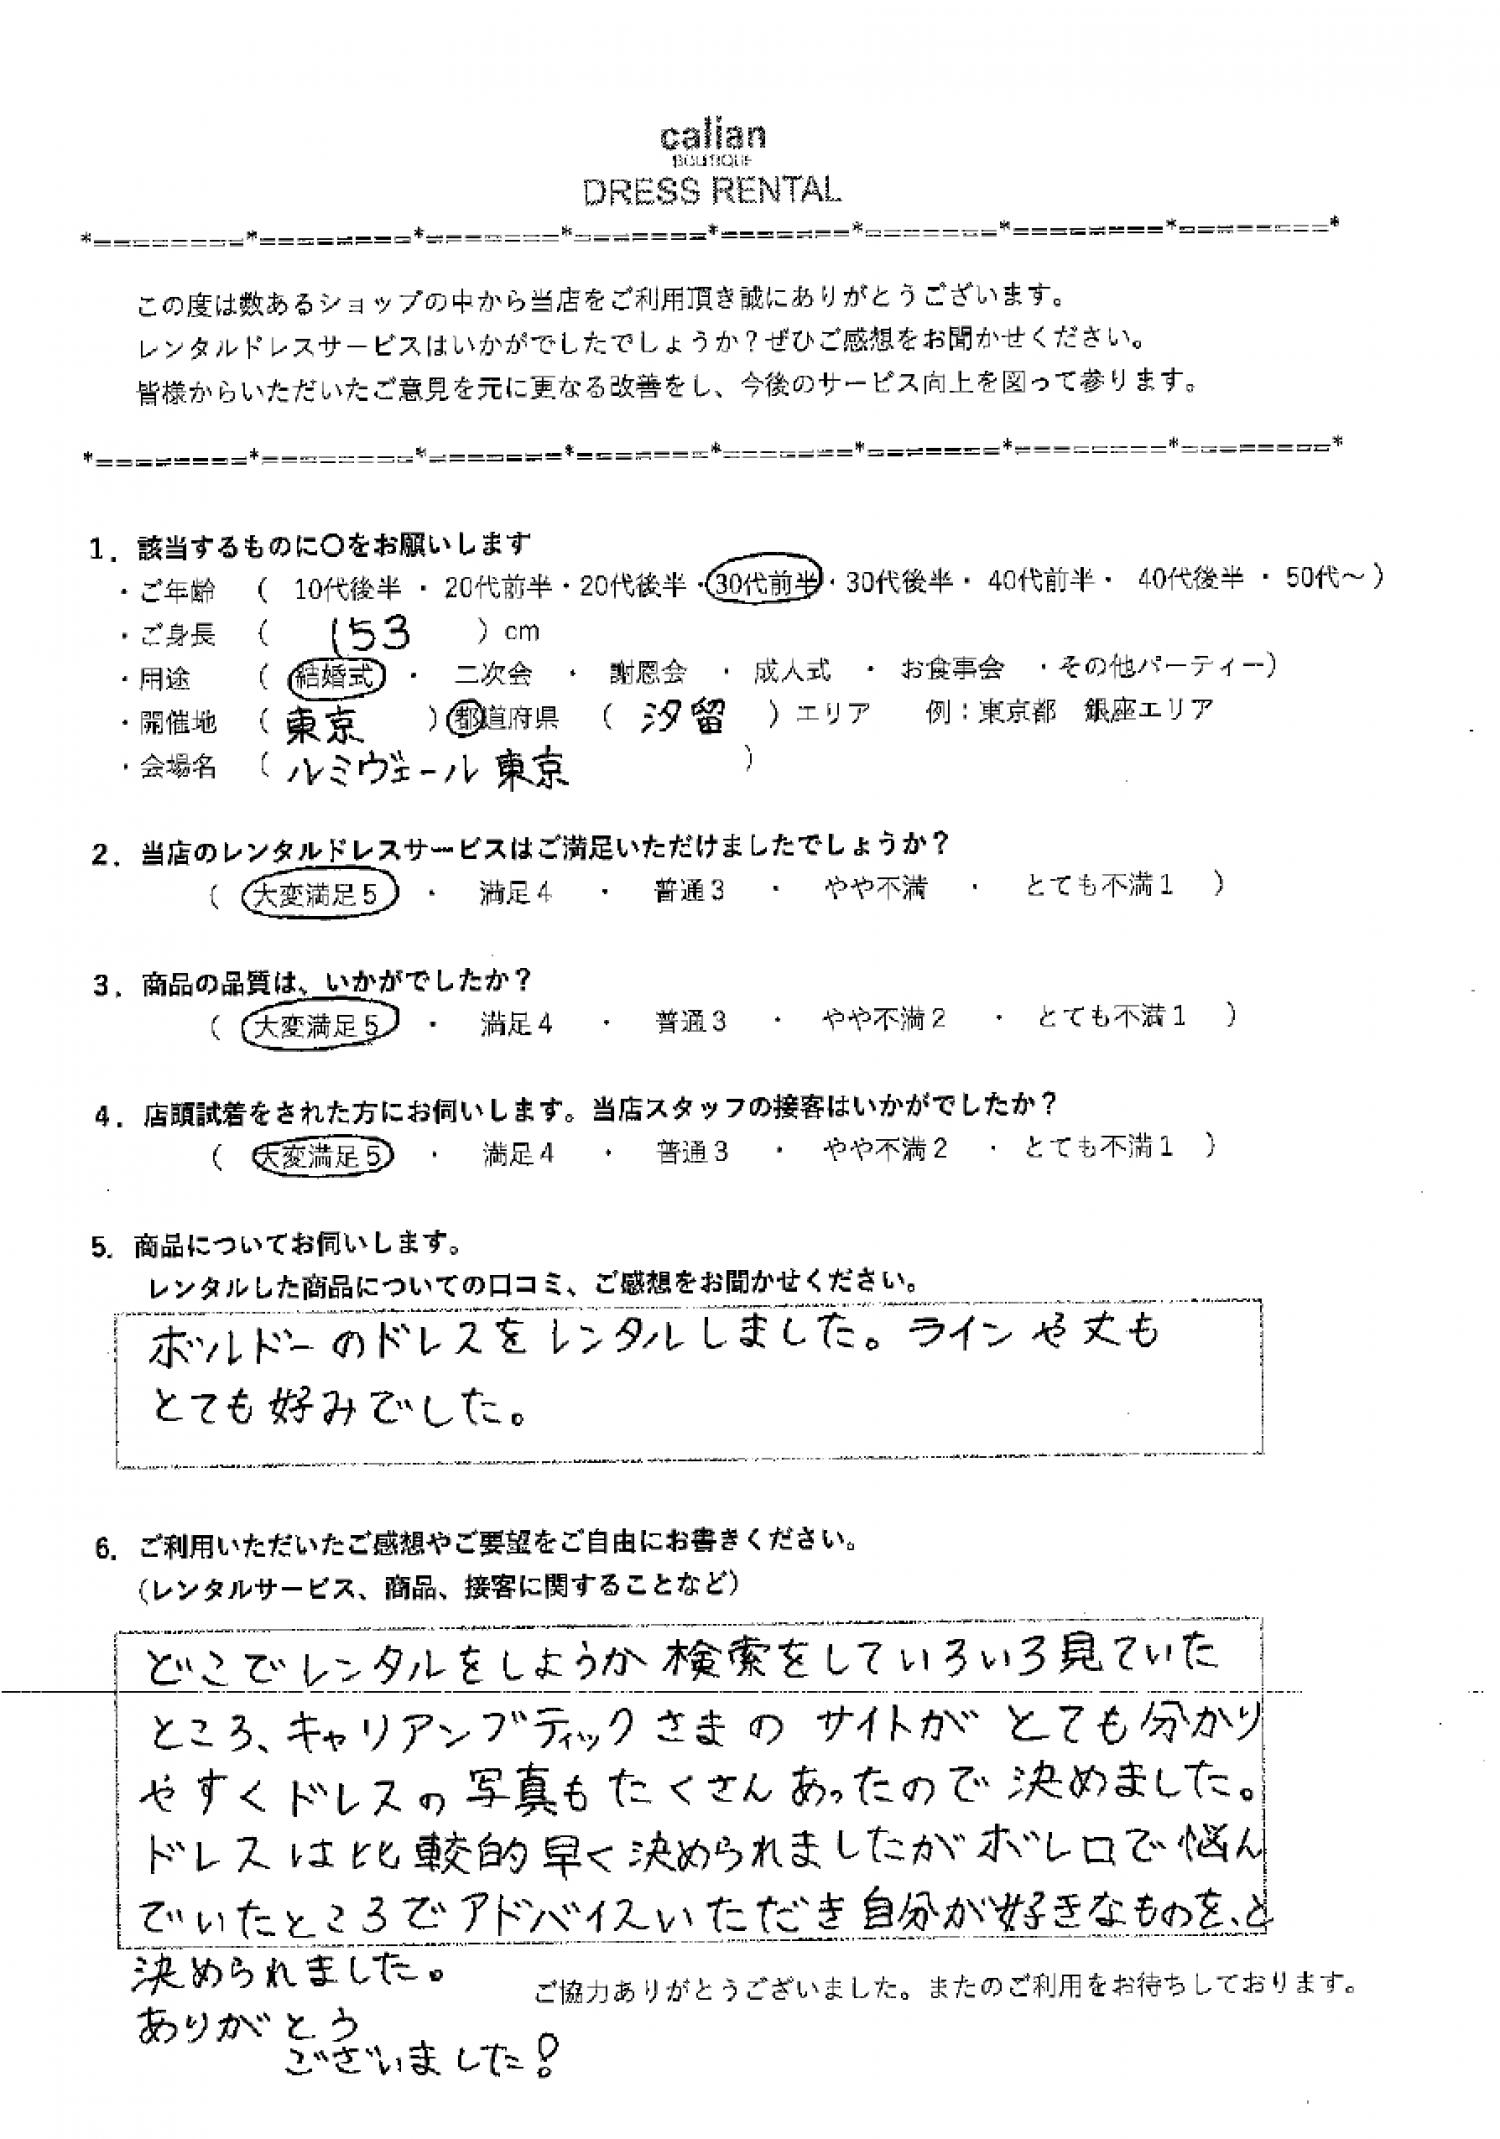 calian
BOUTIQUE
DRESS RENTAL
*========*========*=======*=======*=======*=======*========*========*
この度は数あるショップの中から当店をご利用頂き誠にありがとうございます。
レンタルドレスサービスはいかがでしたでしょうか？ぜひご感想をお聞かせください。
皆様からいただいたご意見を元に更なる改善をし、今後のサービス向上を図って参ります。
*========*========*=======*=======*=======*=======*========*========*
1．該当するものに〇をお願いします
・ご年齢 （ 10代後半 ・ 20代前半・20代後半・30代前半・30代後半・ 40代前半・ 40代後半 ・ 50代～）
・ご身長 （ 153 ）cm
・用途 （ 結婚式 ・ 二次会 ・ 謝恩会 ・ 成人式 ・ お食事会 ・その他パーティー）
・開催地 （ 東京 ）都道府県 （ 汐留 ）エリア 例：東京都 銀座エリア
・会場名 （ ルミヴェール東京 ）
2．当店のレンタルドレスサービスはご満足いただけましたでしょうか？
（ 大変満足5 ・ 満足4 ・ 普通3 ・ やや不満 ・ とても不満1 ）
3．商品の品質は、いかがでしたか？
（ 大変満足5 ・ 満足4 ・ 普通3 ・ やや不満2 ・ とても不満1 ）
4．店頭試着をされた方にお伺いします。当店スタッフの接客はいかがでしたか？
（ 大変満足5 ・ 満足4 ・ 普通3 ・ やや不満2 ・ とても不満1 ）
5．商品についてお伺いします。
レンタルした商品についての口コミ、ご感想をお聞かせください。
ボルドーのドレスをレンタルしました。ラインや丈も
とても好みでした。
6．ご利用いただいたご感想やご要望をご自由にお書きください。
（レンタルサービス、商品、接客に関することなど）
どこでレンタルをしようか検索をしていろいろ見ていた
ところ、キャリアンブティックさまの サイトが とても分かり
やすくドレスの写真もたくさんあったので決めました。
ドレスは比較的早く決められましたがボレロで悩ん
でいたところでアドバイスいただき自分が好きなものを、と
決められました。
ご協力ありがとうございました。またのご利用をお待ちしております。
ありがとう
ございました！